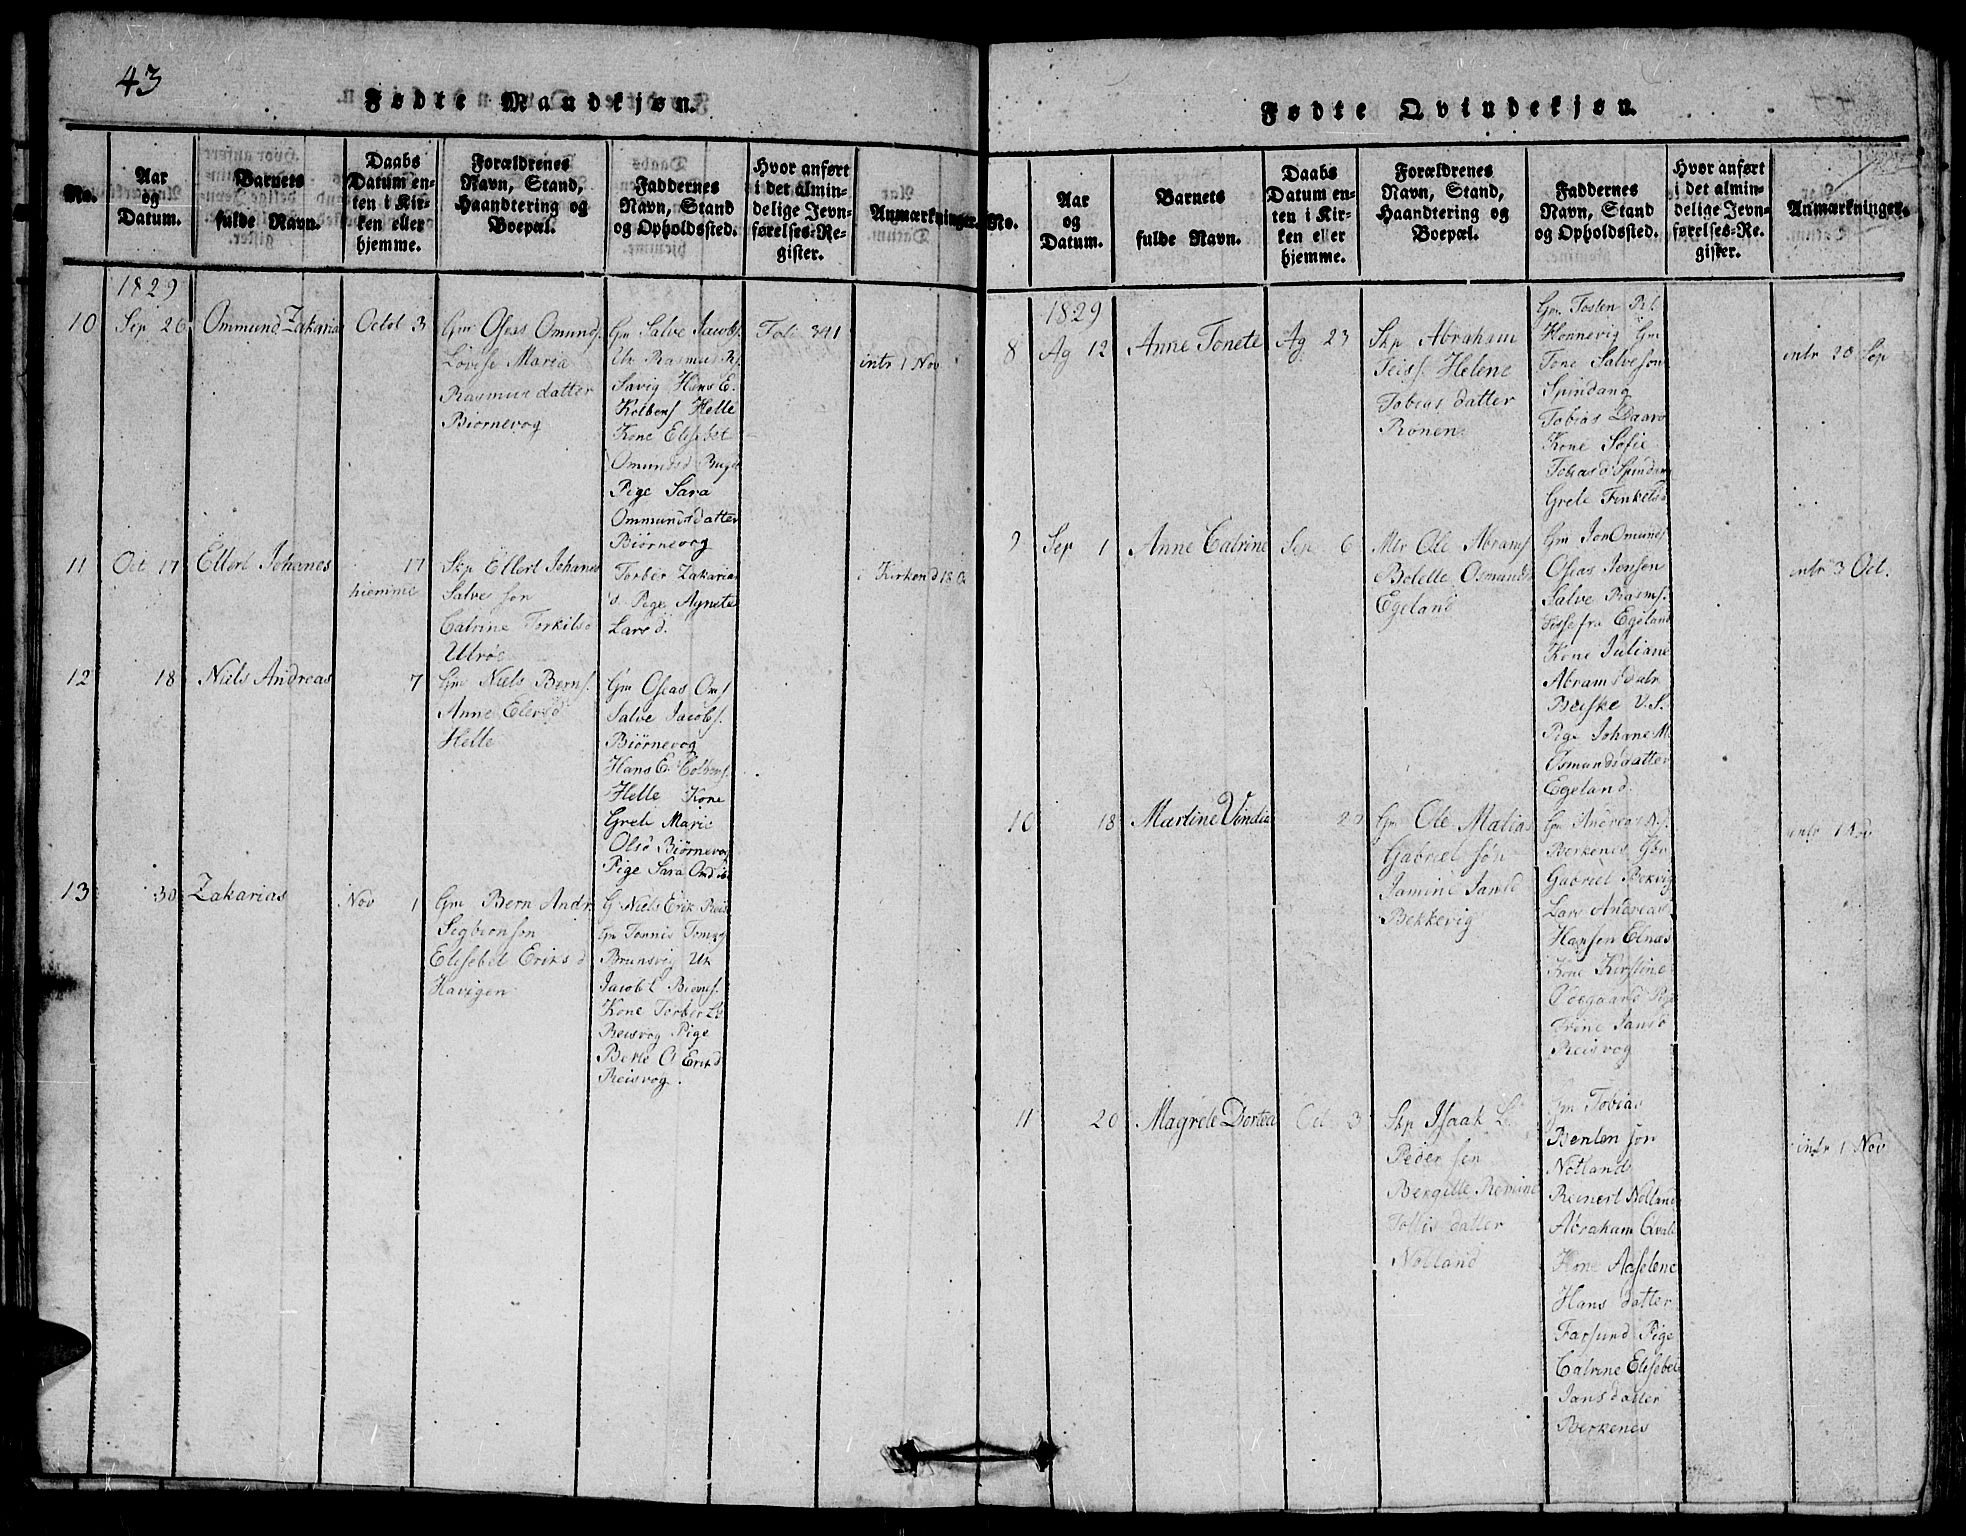 43
Fødte Mandkjøn.
No.
Aar
og
Datum.
Barnets
fulde Navn.
Daabs
Datum en-
ten i Kir-
ken eller
hjemme.
Forældrenes
Navn, Stand,
Haandtering og
Boepæl.
Faddernes
Navn, Stand
og Opholdssted.
Hvor anført
i det almin-
delige Jevn-
førelses-Re-
gister.
Anmærkninger.
1829
10
Sep 26
Ommund Zakarias
Octob 3
Gm Oseas Omunds.
Lovise Maria
Rasmus datter
Biørnevog
Gm Salve Jacobs.
Rasmus
Savig Hans E.
Kolbens Helle
Kone Elisebet
Omundsd
Pige Sara
Ommundsdatter
Biørnevog
Fol 341
intr 1 Nov
11
Oct 17
Ellert Johanes
17
hiemme
Skp Ellert Johanes
Salve søn
Catrine Torkilsd
Ulrøe
Torber Zakarias
d. Pige Agnete
Larsd.
i Kirken d 18 Oc
12
18
Niels Andreas
7
Gm Niels Berns.
Anne Elersd
Helle
Gm Oseas Oms
Salve Jacobs.
Biørnevog
Hans E. Colbens.
Helle Kone
Grete Marie
Olsd Biørnevog
Pige Sara
13
30
Zakarias
Nov 1
Gm Bern Andr
Segbiønsøn
Elisebet Eriks d
Havigen
G Niels Erik Reis
Gm Tønnis Tomas
Brunsvig
Jacob C Biørns.
Kone Torber L
Reisvog Pige
Berte O Eriksd
Reisvog.
Fødte Qvindekjøn.
No.
Aar
og
Datum.
Barnets
fulde Navn.
Daabs
Datum en-
ten i Kir-
ken eller
hjemme.
Forældrenes
Navn, Stand,
Haandtering og
Boepæl.
Faddernes
Navn, Stand
og Opholdssted.
Hvor anført
i det almin-
delige Jevn-
førelses-Re-
gister.
Anmærkninger.
1829
8
Ag 12
Anne Tonete
Ag 23
Skp Abraham
Teiss. Helene
Tobias datter
Rønen
Gm. Tosten
Honnevig Gm
Tone Salvesøn
Spindang
Tobias Daavo
Kone Sofie
Tobiasd Spindang
Grete
intr 20 Sep
9
Sep 1
Anne Catrine
Sep 6
Ole Abrams
Bolette Osmunds
Egeland
Gm Jon Omunds
Oseas Jensen
Salve Rasms.
fra Egeland
Kone Juliane
Abramsdatr
V. S.
Pige Johane M
Osmundsdatter
Egeland
intr 3 Oct.
10
18
Martine Vendia
20
Gm Ole Matias
Gabriel søn
Jamine Jansd
Bekkevig
Gm Andreas
Berkenes
Gabriel Bekvig
Lars Andreas
Hansen Elnes
Kone Kirstine
Trine Jansd
Reisvog
intr 1 Nov
11
20
Magrete Dortea
Oct 3
Skp Isaak L
Peder søn
Bergitte
Tollis datter
Notland
Gm Tobias
Bentsen søn
Notland
Reinert Notland
Abraham Qvale
Kone Aaselene
Hans datter
Farsund Pige
Catrine Elisebet
Jansdatter
Berkenes
intr 1 Nov